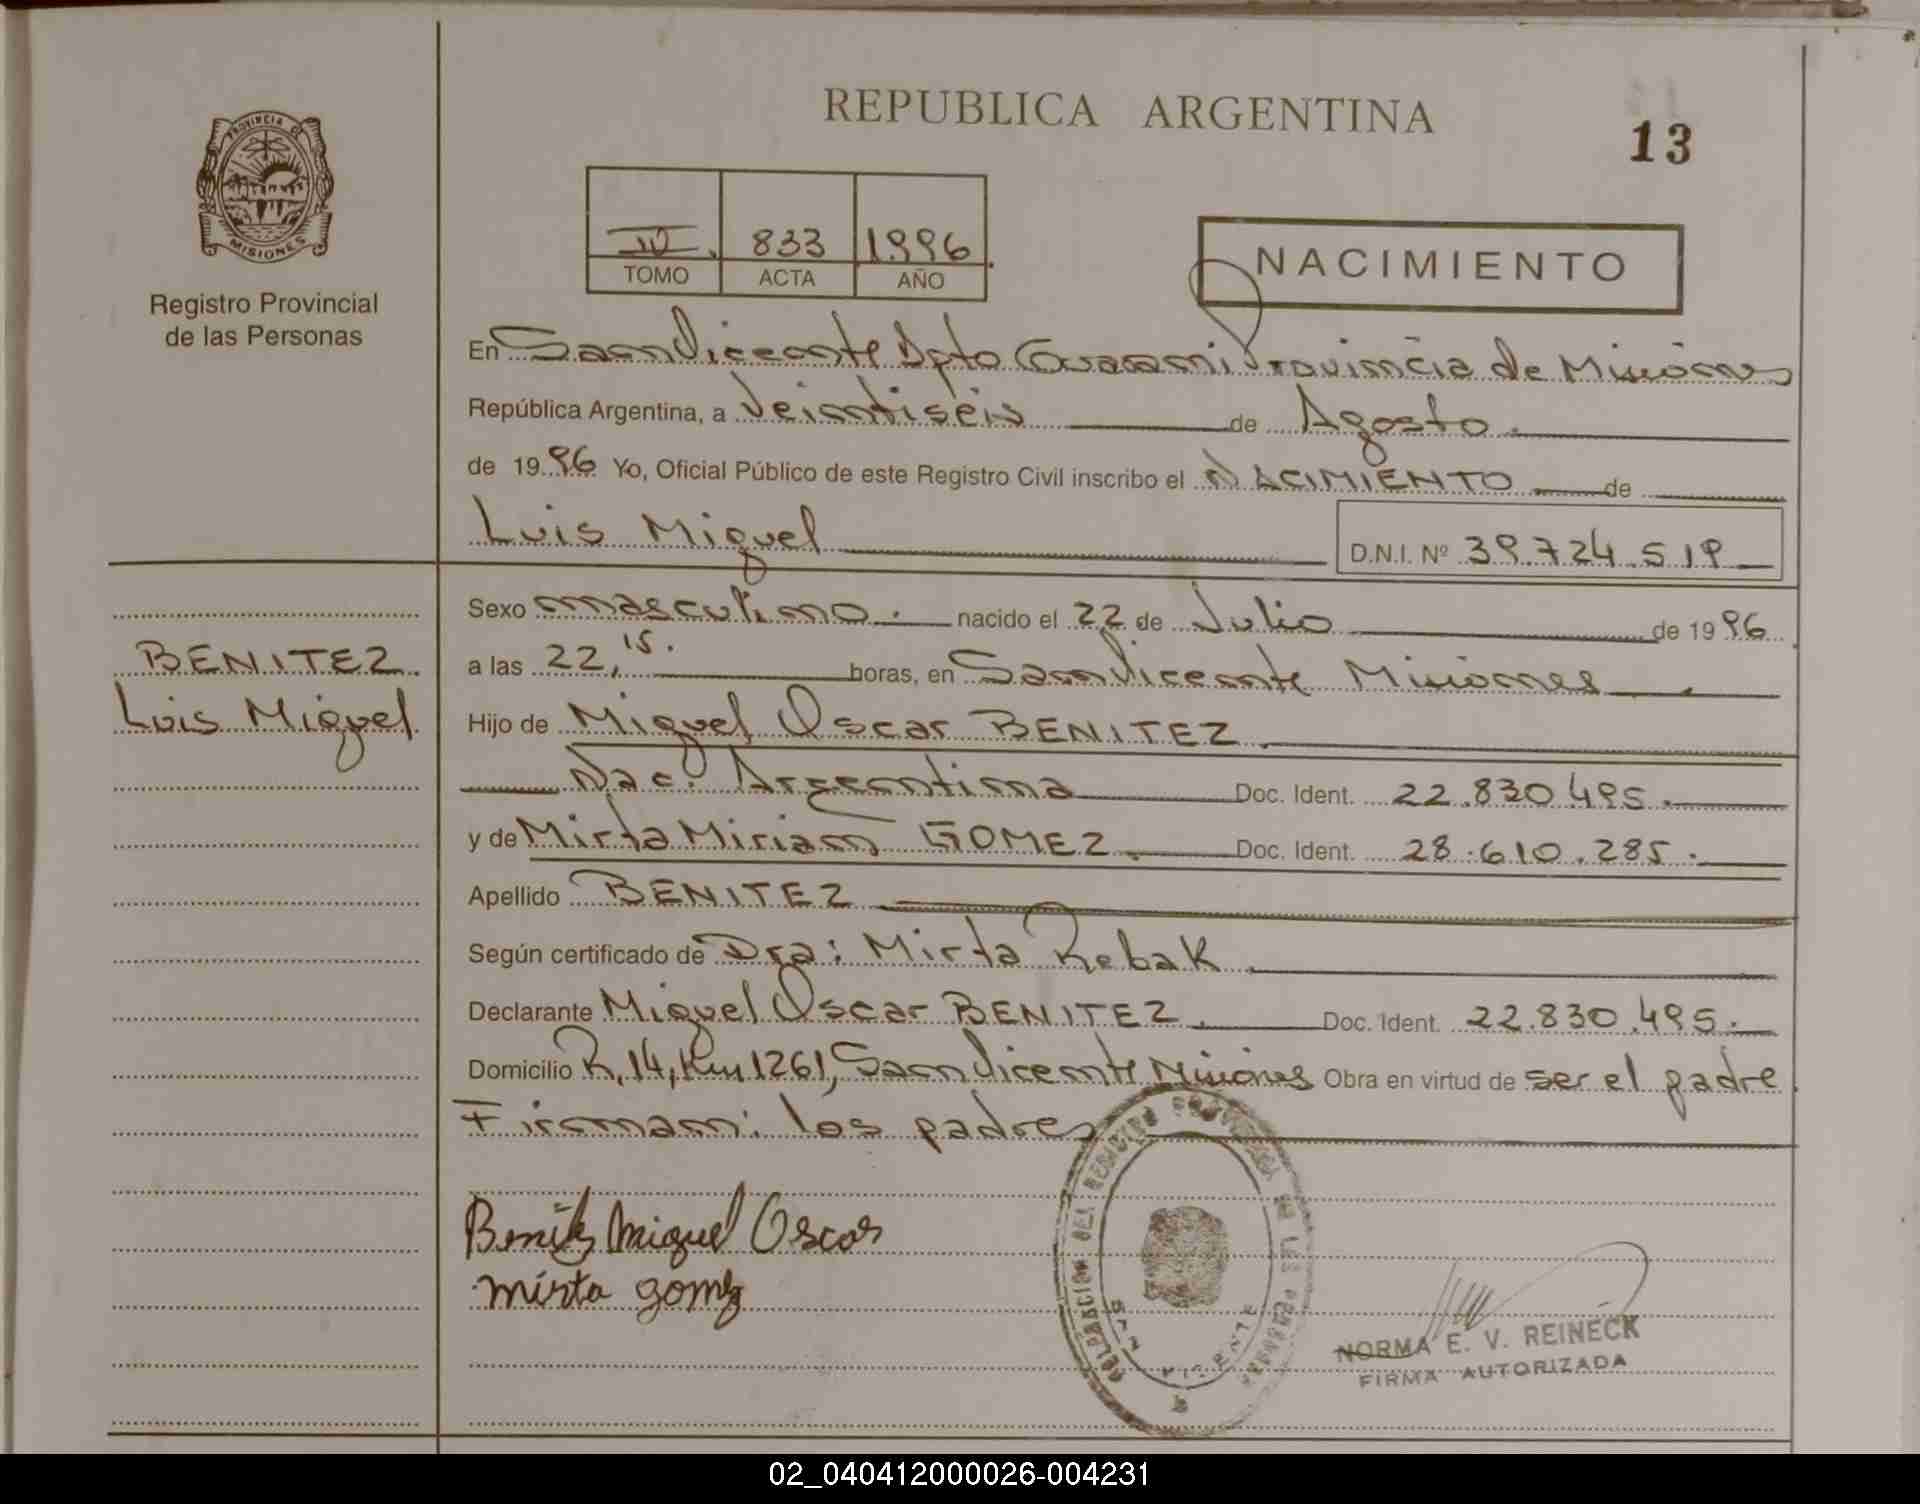 PROVINCIA DE
MISIONES
Registro Provincial
de las Personas
REPUBLICA ARGENTINA
13
IV. 833 1996.
TOMO ACTA AÑO
NACIMIENTO
En San Vicente Dpto Guarani Provincia de Misiones
República Argentina, a Veintiséis de Agosto.
de 1996 Yo, Oficial Público de este Registro Civil inscribo el NACIMIENTO de
Luis Miguel D.N.I. Nº 39.724.519
Sexo masculino. nacido el 22 de Julio de 1996
BENITEZ
Luis Miguel
a las 22,15. horas, en San Vicente Misiones
Hijo de Miguel Oscar BENITEZ.
Nac. Argentina Doc. Ident. 22.830.495.
y de Mirta Miriam GOMEZ. Doc. Ident. 28.610.285.
Apellido BENITEZ
Según certificado de Dra: Mirta Rebak
Declarante Miguel Oscar BENITEZ. Doc. Ident. 22.830.495.
Domicilio R,14,Km 1261, San Vicente Misiones Obra en virtud de ser el padre
Firman: los padres
Benitez Miguel Oscar
mirta gomez
DELEGACION DEL REGISTRO PROVINCIAL DE LAS PERSONAS
SAN VICENTE
NORMA E. V. REINECK
FIRMA AUTORIZADA
02_040412000026-004231